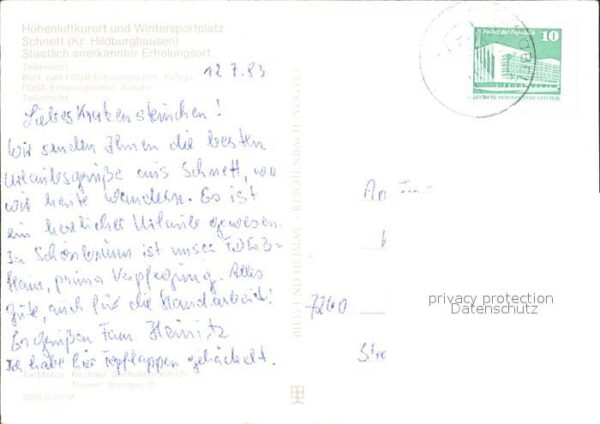 Höhenluftkurort und Wintersportplatz
Schnett (Kr. Hildburghausen)
Staatlich anerkannter Erholungsort
Teilansicht
Blick zum FDGB-Erholungsheim „Kaluga“
FDGB-Erholungsheim „Kaluga“
Teilansicht
12.7.83
Liebes Krankensteinchen!
Wir senden Ihnen die besten
Urlaubsgrüße aus Schnett, wo
wir heute wandern. Es ist
ein herrlicher Urlaub gewesen.
In Schönbrunn ist unser FDGB-
Haus, prima Verpflegung. Alles
Gute, auch für die Handarbeit!
Es grüßen Fam. Heinitz
Ich habe hier Topflappen gehäckelt.
Thonert, Dresden (2)
BILD UND HEIMAT REICHENBACH (VOGTL)
Berlin Palast der Republik
10
An
7260
Str
privacy protection
Datenschutz